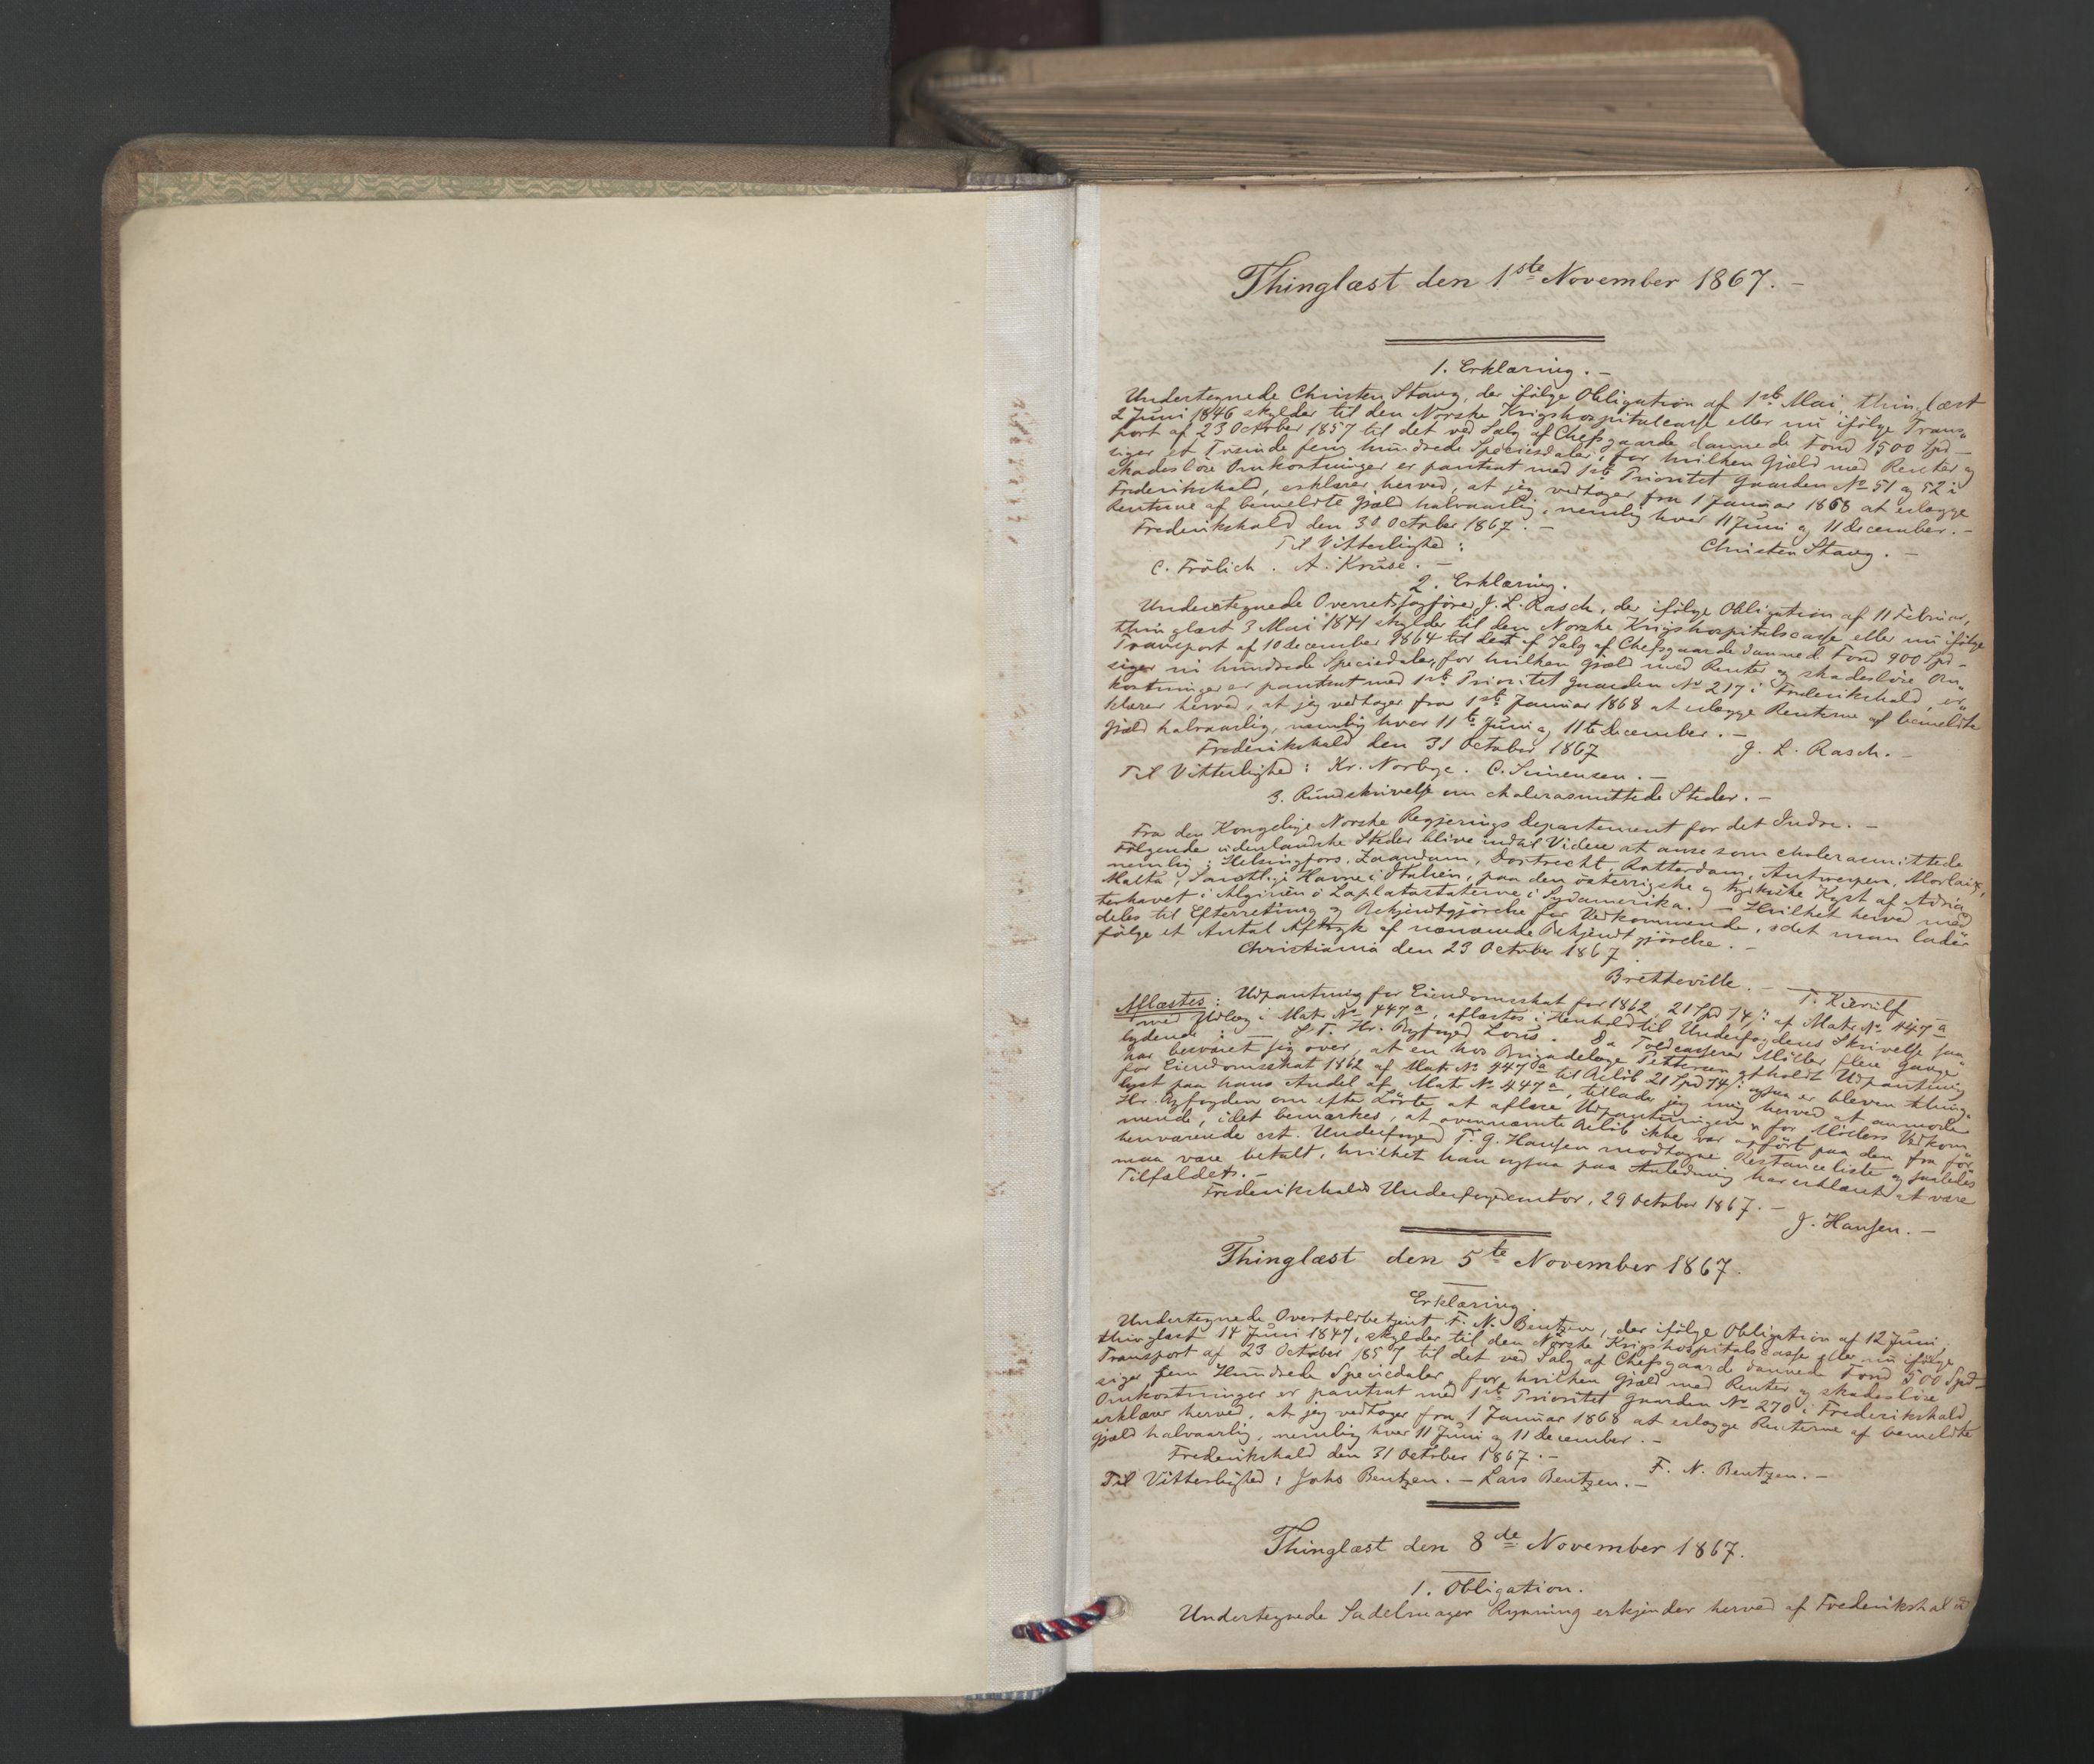 Thinglæst den 1ste November 1867. –
1. Erklæring. –
Undertegnede Christen Stang, der ifølge Obligation af 1ste Mai, thinglæst
2 Juni 1846 skylder til den Norske Krigshospitalcasse eller nu ifølge Trans„
port af 23 October 1857 til det ved Salg af Chefsgaarde dannede Fond 1500 Spd –
siger et Tusinde fem hundrede Speciedaler, for hvilken Gjæld med Renter og
skadesløse Omkostninger er pantsat med 1ste Prioritet Gaarden No 51 og 52 i
Frederikshald, erklærer herved, at jeg vedtager fra 1 Januar 1868 at erlægge
Renterne af bemeldte Gjæld halvaarlig, nemlig hver 11 Juni og 11 December. –
Frederikshald den 30 October 1867. –
Til Vitterlighed:
Christen Stang. –
C. Frölich. A. Kruse. –
2. Erklæring.
Undertegnede Overretssagfører J. L. Rasch, der ifølge Obligation af 11 Februar,
thinglæst 3 Mai 1841 skylder til den Norske Krigshospitalscasse eller nu ifølge
Transport af 10 December 1864 til det af Salg af Chefsgaarde dannede Fond 900 Spd –
siger ni hundrede Speciedaler, for hvilken Gjæld med Renter og skadesløse Om„
kostninger er pantsat med 1ste Prioritet Gaarden No 217 i Frederikshald, er„
klærer herved, at jeg vedtager fra 1ste Januar 1868 at erlægge Renterne af bemeldte
Gjæld halvaarlig, nemlig hver 11te Juni og 11te December. –
Frederikshald den 31 October 1867
J. L. Rasch. –
Til Vitterlighed: Kr. Norbye. C. Simensen. –
3. Rundskrivelse om cholerasmittede Steder. –
Fra den Kongelige Norske Regjerings Departement for det Indre. –
Følgende udenlandske Steder blive indtil Videre at anse som cholerasmittede
nemlig: Helsingfors, Zaandam, Dortrecht, Rotterdam, Antwerpen, Morlaix,
Malta, Samtlige Havne i Italien, paa den österrigske og tyrkiske Kyst af Adria„
terhavet i Algirien o Laplatastaterne i Sydamerika. – Hvilket herved med„
deles til Efterretning og Bekjendtgjörelse for Vedkommende, idet man lader
følge et Antal Aftryk af nævnte Bekjendtgjörelse. –
Christiania den 23 October 1867.
Bretteville. –
T. Kierulf
Aflæstes: Udpantning for Eiendomsskat for 1862, 21 Spd 74 s af Matr. No 447a
med Udlæg i Mat. No 447a, aflæstes i Henhold til Underfogdens Skrivelse saa„
lydende: – S. T. Hr. Byfoged Lous. Da Toldcasserer Möller flere Gange
har besværet sig over, at en hos Brigadelæge Pettersen afholdt Udpantning
for Eiendomsskat 1862 af Mat. No 447a til Belöb 21 Spd 74 s ogsaa er bleven thing„
lyst paa hans Andel af Mat. No 447a, tillader jeg mig herved at anmode
Hr. Byfogden om efter Lövte at aflæse Udpantningen for Möllers Vedkom„
mende, idet bemærkes, at ovennævnte Belöb ikke var opfört paa den fra for„
henværende cst. Underfoged T. G. Hansen modtagne Restanceliste og saaledes
maa være betalt, hvilket han ogsaa paa Anledning har erklæret at være
Tilfældet. –
Frederikshalds Underfogedcontor, 29 October 1867. –
J. Hansen. –
Thinglæst den 5te November 1867.
Erklæring.
Undertegnede Overtoldbetjent F. N. Bentzen, der ifølge Obligation af 12 Juni,
thinglæst 14 Juni 1847, skylder til den Norske Krigshospitalscasse eller nu ifølge
Transport af 23 October 1857 til det ved Salg af Chefsgaarde dannede Fond 500 Spd –
siger fem Hundrede Speciedaler, for hvilken Gjæld med Renter og skadesløse
Omkostninger er pantsat med 1ste Prioritet Gaarden No 270 i Frederikshald,
erklærer herved, at jeg vedtager fra 1 Januar 1868 at erlægge Renterne af bemeldte
Gjæld halvaarlig, nemlig hver 11 Juni og 11 December. –
Frederikshald den 31 October 1867. –
F. N. Bentzen. –
Til Vitterlighed: Johs Bentzen. – Lars Bentzen. –
Thinglæst den 8de November 1867.
1. Obligation.
Undertegnede Sadelmager Rynning erkjender herved af Frederikshald